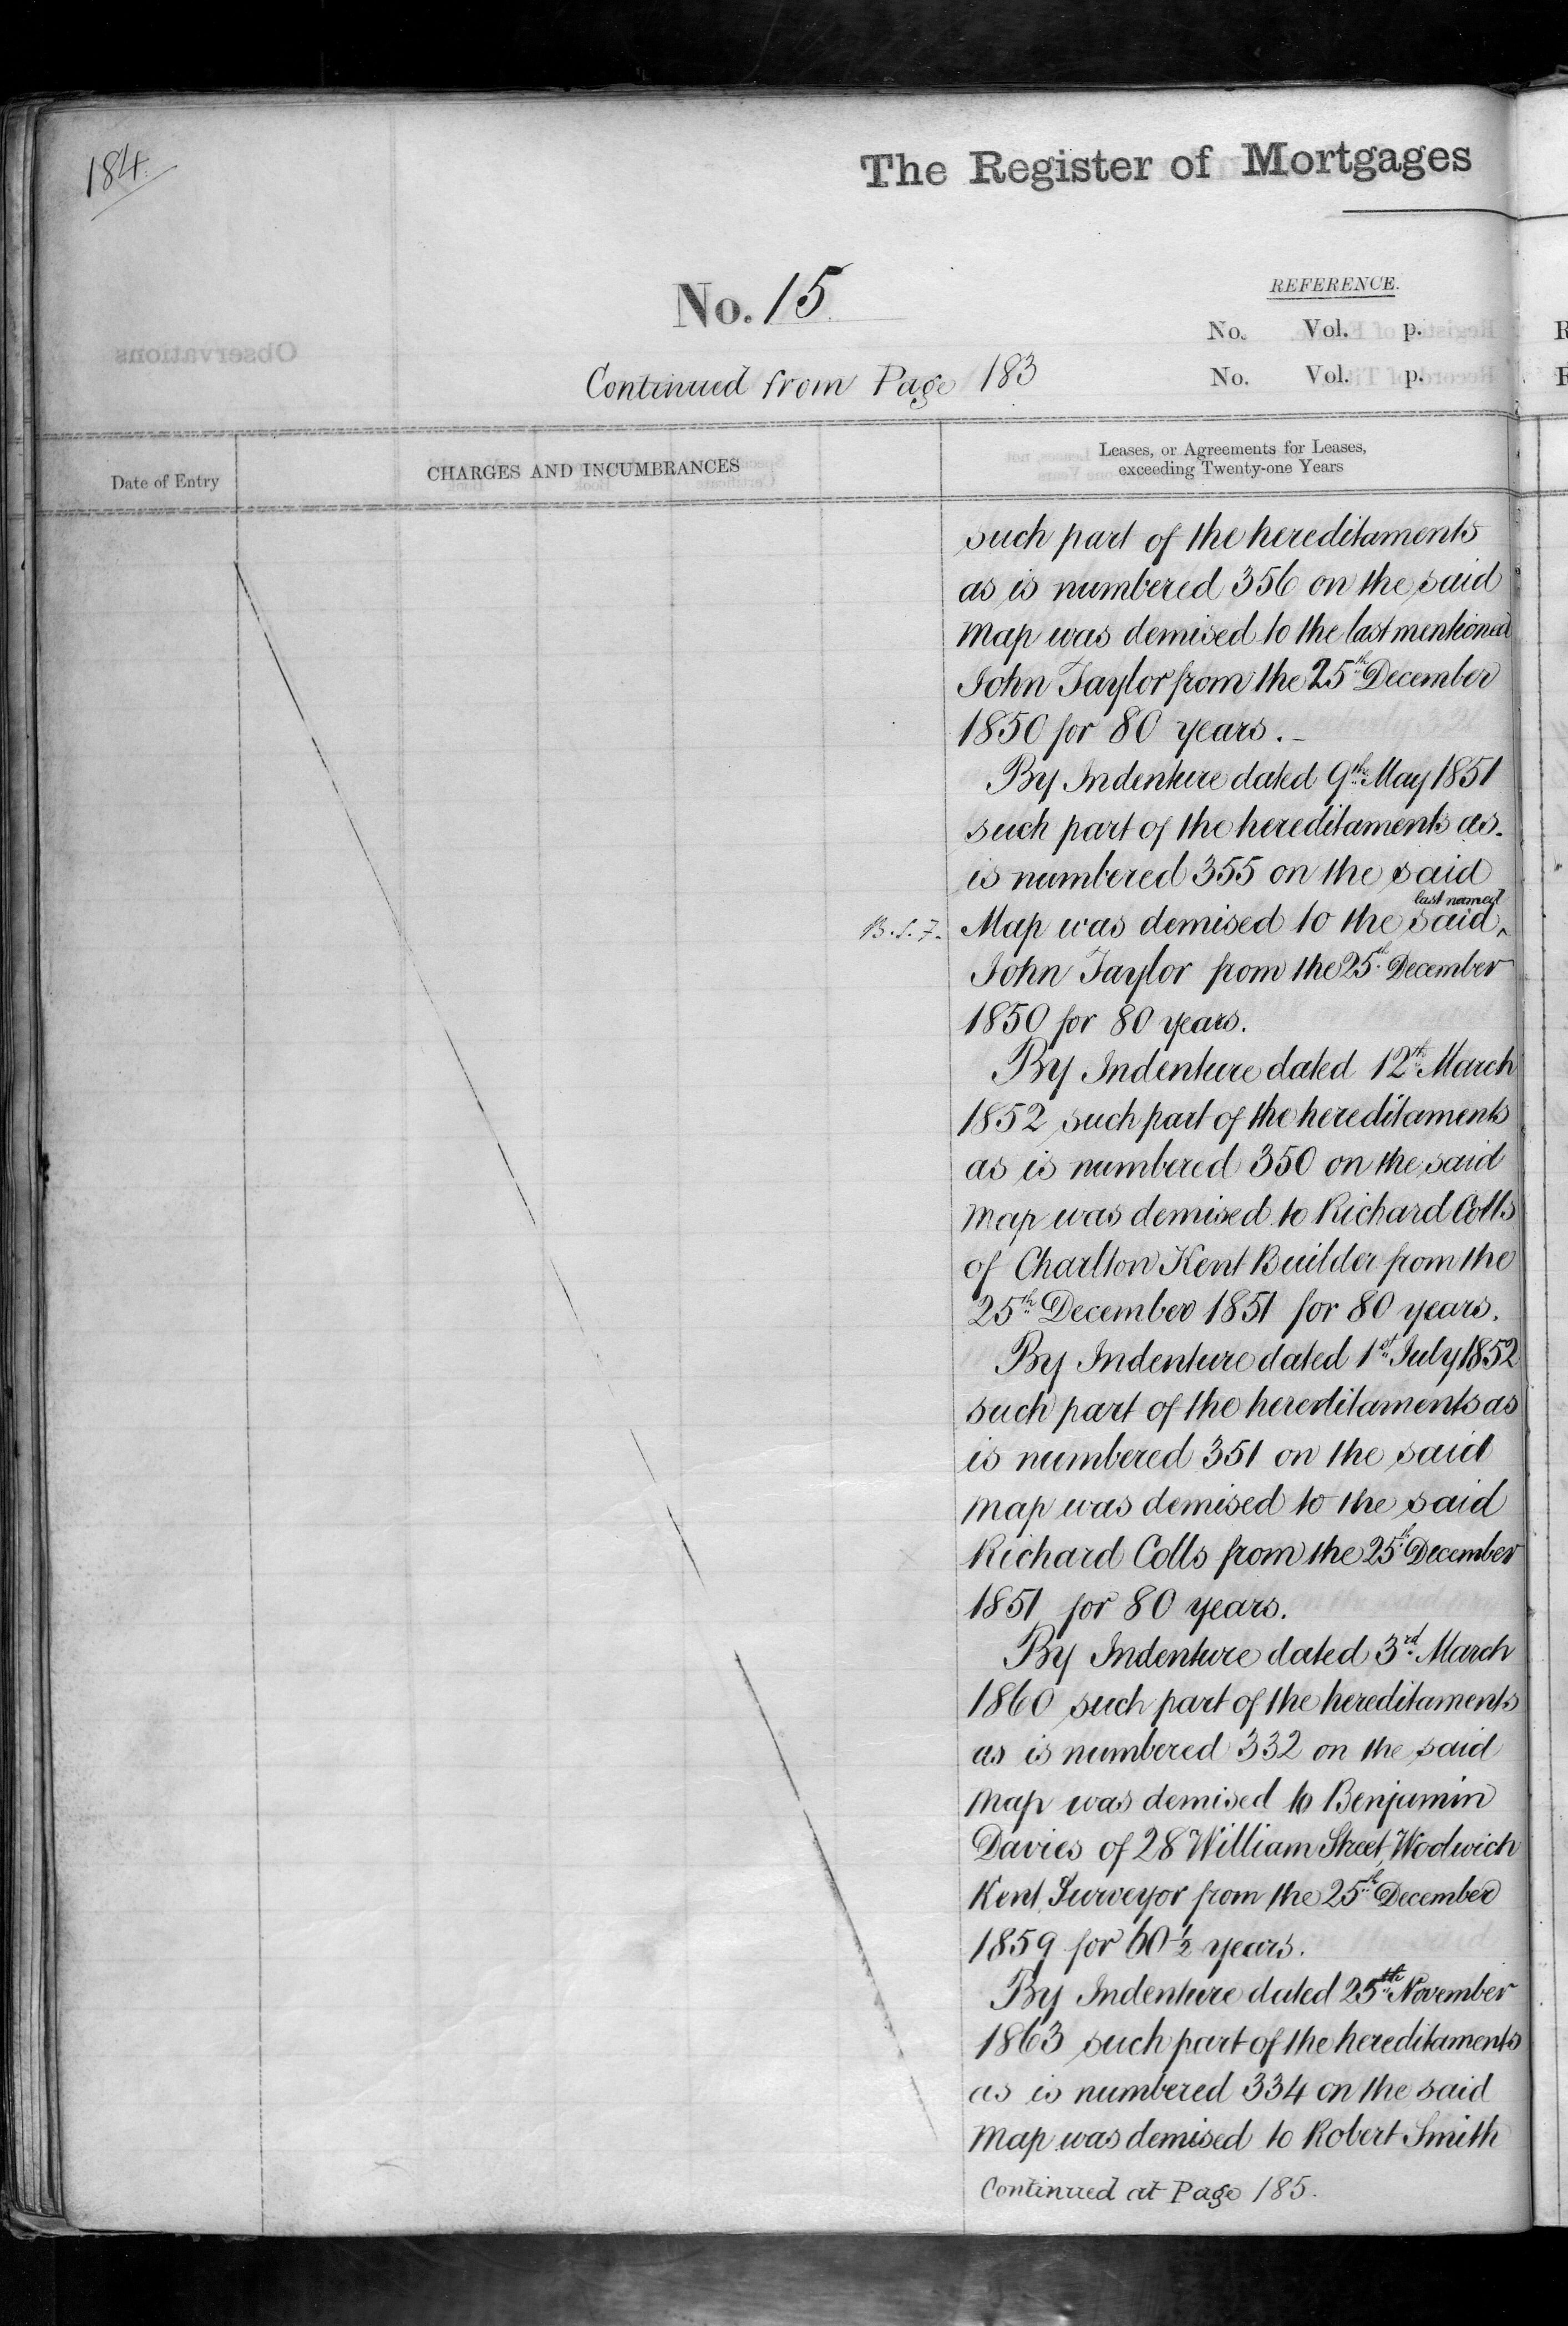 184.
The Register of Mortgages
No. 15
REFERENCE.
No. Vol. p.
Continued from Page 183
No. Vol. p.
Date of Entry
CHARGES AND INCUMBRANCES
Leases, or Agreements for Leases,
exceeding Twenty-one Years
such part of the hereditaments
as is numbered 356 on the said
map was demised to the last mentioned
John Taylor from the 25th December
1850 for 80 years.
By Indenture dated 9th May 1851
such part of the hereditaments as
is numbered 355 on the said
last named
Map was demised to the said
John Taylor from the 25th December
1850 for 80 years.
By Indenture dated 12th March
1852 such part of the hereditaments
as is numbered 350 on the said
map was demised to Richard Colls
of Charlton Kent Builder from the
25th December 1851 for 80 years.
By Indenture dated 1st July 1852
such part of the hereditaments as
is numbered 351 on the said
map was demised to the said
Richard Colls from the 25th December
1851 for 80 years.
By Indenture dated 3rd March
1860 such part of the hereditaments
as is numbered 332 on the said
map was demised to Benjamin
Davies of 28 William Street, Woolwich
Kent Surveyor from the 25th December
1859 for 60½ years.
By Indenture dated 25th November
1863 such part of the hereditaments
as is numbered 334 on the said
map was demised to Robert Smith
Continued at Page 185.